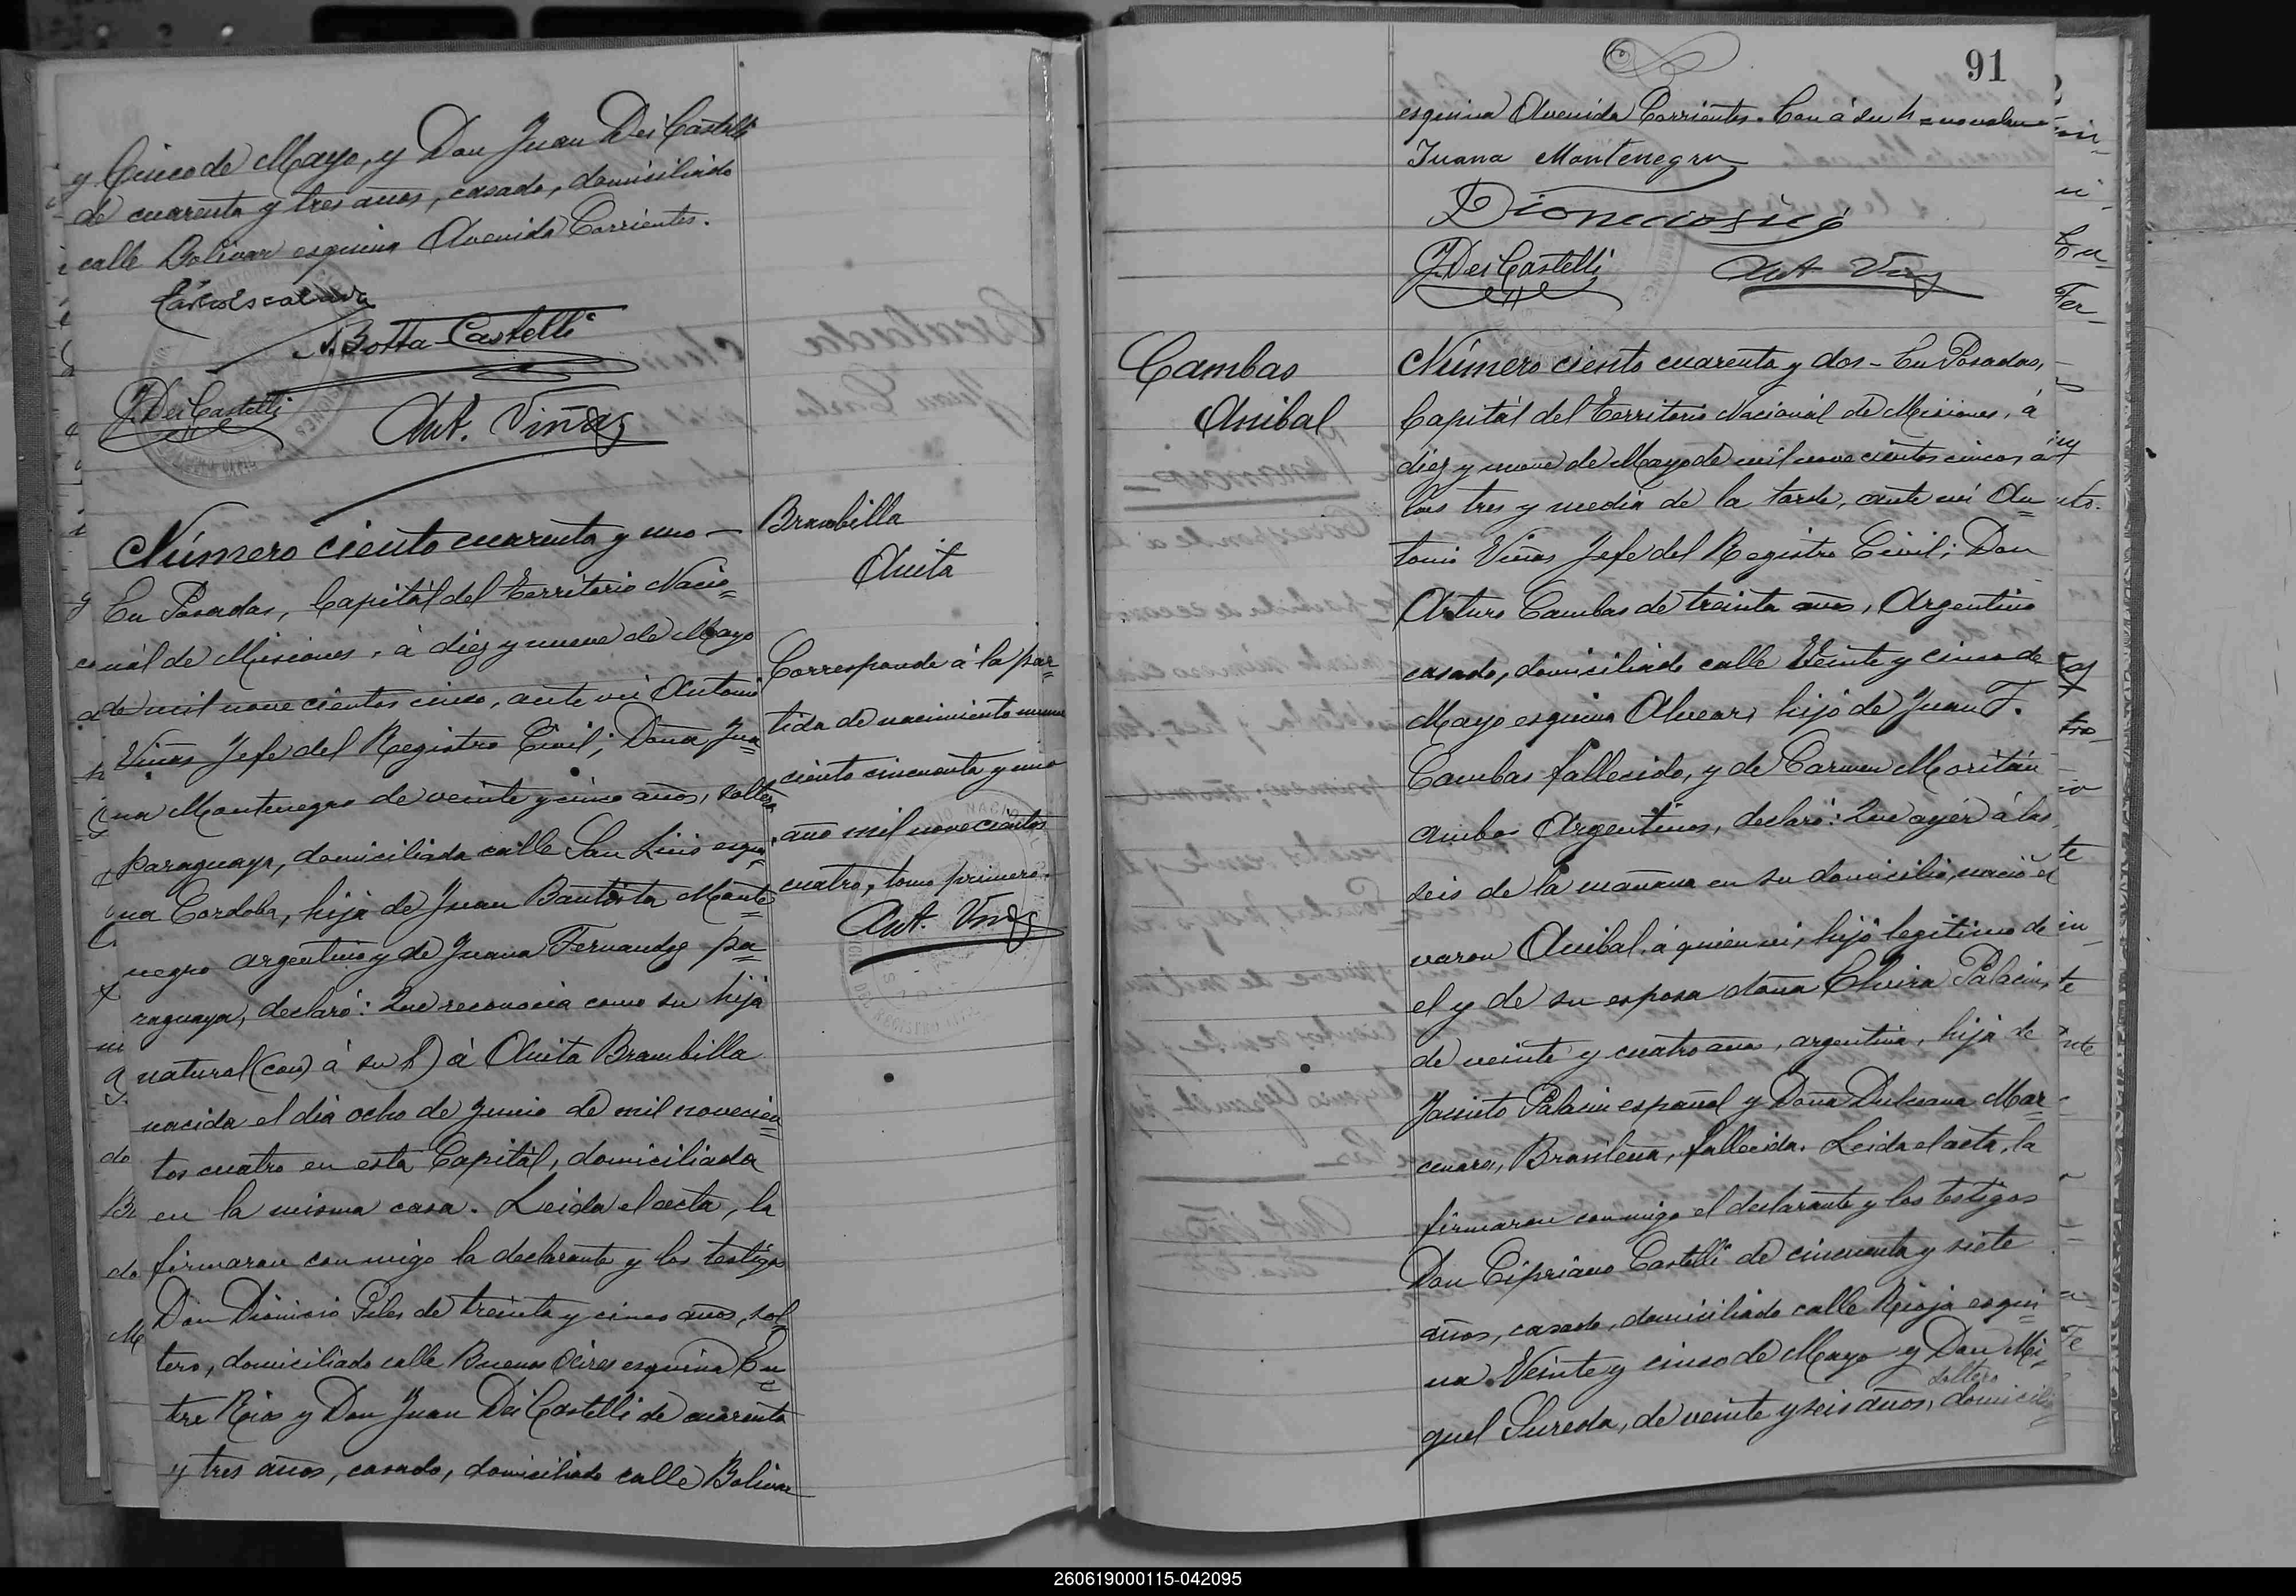 y Cinco de Mayo, y Don Juan Dei Castelli
de cuarenta y tres años, casado, domiciliado
calle Bolivar esquina Avenida Corrientes.
Carlos Escalada
A. Botta Castelli
J. Dei Castelli
Ant. Viñas
Número ciento cuarenta y uno —
En Posadas, Capitál del Territorio Nacio=
nál de Misiones, á diez y nueve de Mayo
de mil novecientos cinco, ante mi Antonio
Viñas Jefe del Registro Civil; Doña Jua=
na Montenegro de veinte y cinco años, soltera
paraguaya, domiciliada calle San Luis esqui=
na Cordoba, hija de Juan Bautista Monte=
negro argentino y de Juana Fernandez pa=
raguaya, declaró: Que reconocia como su hija
natural (con) á su h) á Anita Brambilla
nacida el dia ocho de Junio de mil novecien=
tos cuatro en esta Capitál, domiciliada
en la misma casa. Leida el acta, la
firmaron conmigo la declarante y los testigos
Don Dionisio Giles de treinta y cinco años, sol=
tero, domiciliado calle Buenos Aires esquina En=
tre Rios y Don Juan Dei Castelli de cuarenta
y tres años, casado, domiciliado calle Bolivar
Brambilla
Anita
Corresponde á la par=
tida de nacimiento
ciento cincuenta y uno
año mil novecientos
cuatro, tomo primero.
Ant. Viñas
91
esquina Avenida Corrientes. Con á su h = no vale
Juana Montenegro
J. Dei Castelli
Ant Viñas
Cambas
Anibal
Número ciento cuarenta y dos - En Posadas,
Capitál del Territorio Nacionál de Misiones, á
diez y nueve de Mayo de mil novecientos cinco, á
las tres y media de la tarde, ante mi An=
tonio Viñas Jefe del Registro Civil; Don
Arturo Cambas de treinta años, Argentino
casado, domiciliado calle Veinte y cinco de
Mayo esquina Alvear, hijo de Juan F.
Cambas fallecido, y de Carmen Moritán
ambos Argentinos, declaró: Que ayer á las
seis de la mañana en su domicilio, nació el
varon Anibal, á quien vi, hijo legitimo de
el y de su esposa doña Elvira Palacin,
de veinte y cuatro años, argentina, hija de
Jacinto Palacin español y Doña
Brasileña, fallecida. Leida el acta, la
firmaron conmigo el declarante y los testigos
Don Cipriano Castelli de cincuenta y siete
años, casado, domiciliado calle Rioja esqui=
na Veinte y cinco de Mayo y Don Mi=
soltero
guel Sureda, de veinte y seis años, domicili=
260619000115-042095